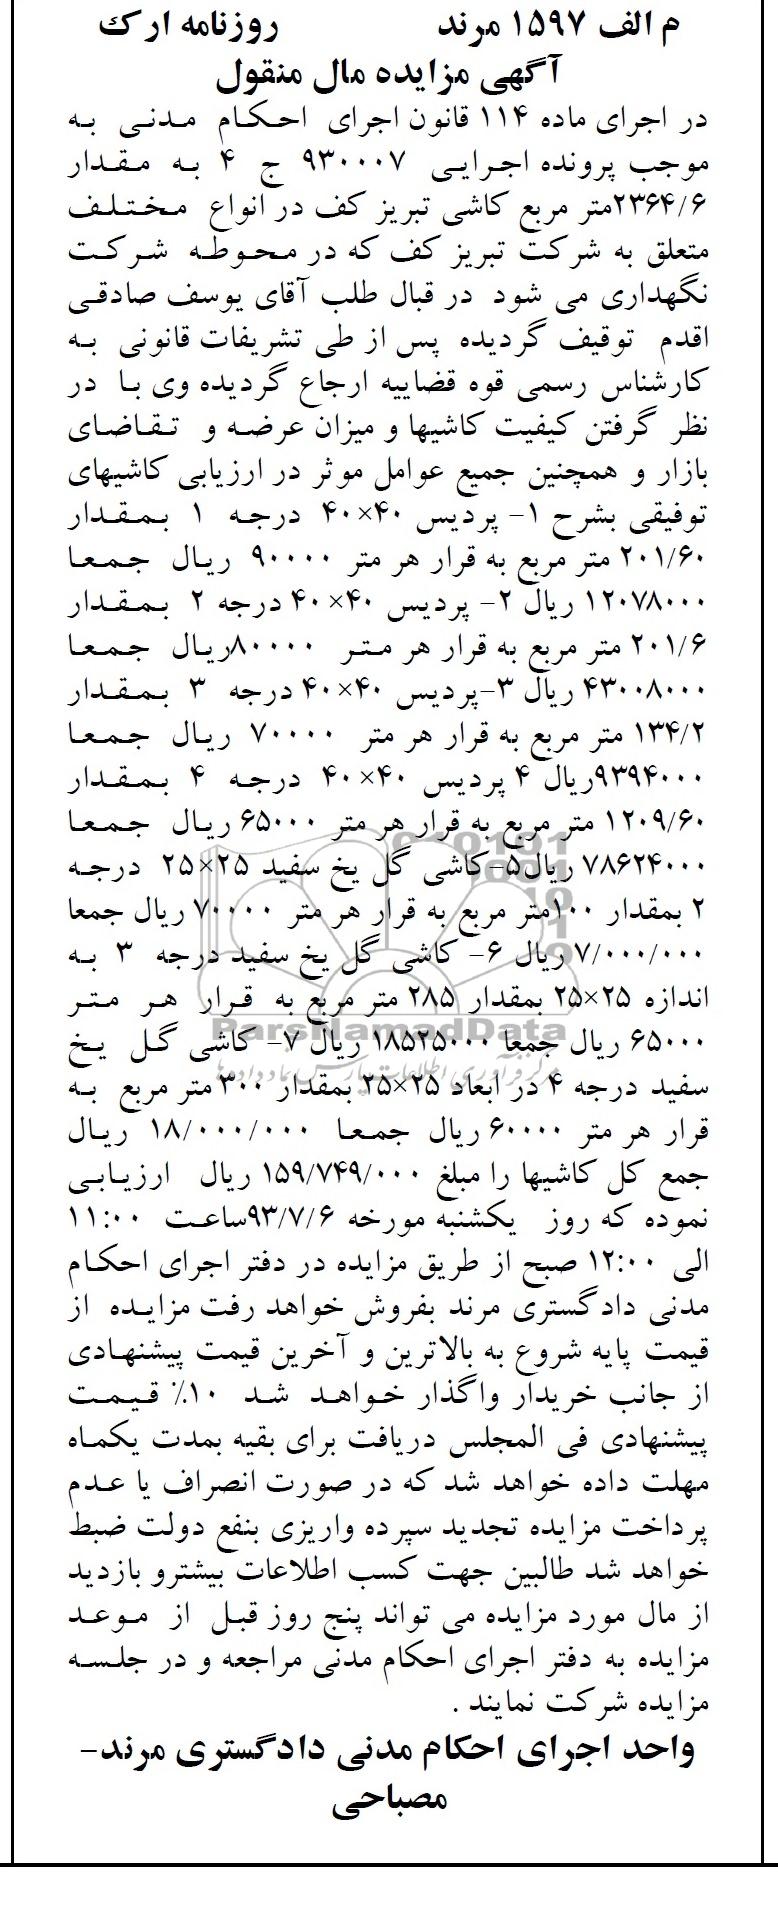 م الف ۱۵۹۷ مرند روزنامه ارک
آگهی مزایده مال منقول
در اجرای ماده ۱۱۴ قانون اجرای احکام مدنی به
موجب پرونده اجرایی ۹۳۰۰۰۷ ج ۴ به مقدار
۲۳۶۴/۶متر مربع کاشی تبریز کف در انواع مختلف
متعلق به شرکت تبریز کف که در محوطه شرکت
نگهداری می شود در قبال طلب آقای یوسف صادقی
اقدم توقیف گردیده پس از طی تشریفات قانونی به
کارشناس رسمی قوه قضاییه ارجاع گردیده وی با در
نظر گرفتن کیفیت کاشیها و میزان عرضه و تقاضای
بازار و همچنین جمیع عوامل موثر در ارزیابی کاشیهای
توفیقی بشرح ۱- پردیس ۴۰×۴۰ درجه ۱ بمقدار
۲۰۱/۶۰ متر مربع به قرار هر متر ۹۰۰۰۰ ریال جمعا
۱۲۰۷۸۰۰۰ ریال ۲- پردیس ۴۰×۴۰ درجه ۲ بمقدار
۲۰۱/۶ متر مربع به قرار هر متر ۸۰۰۰۰ریال جمعا
۴۳۰۰۸۰۰۰ ریال ۳-پردیس ۴۰×۴۰ درجه ۳ بمقدار
۱۳۴/۲ متر مربع به قرار هر متر ۷۰۰۰۰ ریال جمعا
۹۳۹۴۰۰۰ریال ۴ پردیس ۴۰×۴۰ درجه ۴ بمقدار
۱۲۰۹/۶۰ متر مربع به قرار هر متر ۶۵۰۰۰ ریال جمعا
۷۸۶۲۴۰۰۰ ریال۵-کاشی گل یخ سفید ۲۵×۲۵ درجه
۲ بمقدار ۱۰۰متر مربع به قرار هر متر ۷۰۰۰۰ ریال جمعا
۷/۰۰۰/۰۰۰ ریال ۶- کاشی گل یخ سفید درجه ۳ به
اندازه ۲۵×۲۵ بمقدار ۲۸۵ متر مربع به قرار هر متر
۶۵۰۰۰ ریال جمعا ۱۸۵۲۵۰۰۰ ریال ۷- کاشی گل یخ
سفید درجه ۴ در ابعاد ۲۵×۲۵ بمقدار ۳۰۰ متر مربع به
قرار هر متر ۶۰۰۰۰ ریال جمعا ۱۸/۰۰۰/۰۰۰ ریال
جمع کل کاشیها را مبلغ ۱۵۹/۷۴۹/۰۰۰ ریال ارزیابی
نموده که روز یکشنبه مورخه ۹۳/۷/۶ساعت ۱۱:۰۰
الی ۱۲:۰۰ صبح از طریق مزایده در دفتر اجرای احکام
مدنی دادگستری مرند بفروش خواهد رفت مزایده از
قیمت پایه شروع به بالاترین و آخرین قیمت پیشنهادی
از جانب خریدار واگذار خواهد شد ۱۰٪ قیمت
پیشنهادی فی المجلس دریافت برای بقیه بمدت یکماه
مهلت داده خواهد شد که در صورت انصراف یا عدم
پرداخت مزایده تجدید سپرده واریزی بنفع دولت ضبط
خواهد شد طالبین جهت کسب اطلاعات بیشترو بازدید
از مال مورد مزایده می تواند پنج روز قبل از موعد
مزایده به دفتر اجرای احکام مدنی مراجعه و در جلسه
مزایده شرکت نمایند .
واحد اجرای احکام مدنی دادگستری مرند-
مصباحی
ParsNamadData
مرکز فرآوری اطلاعات پارس نماد داده‌ها